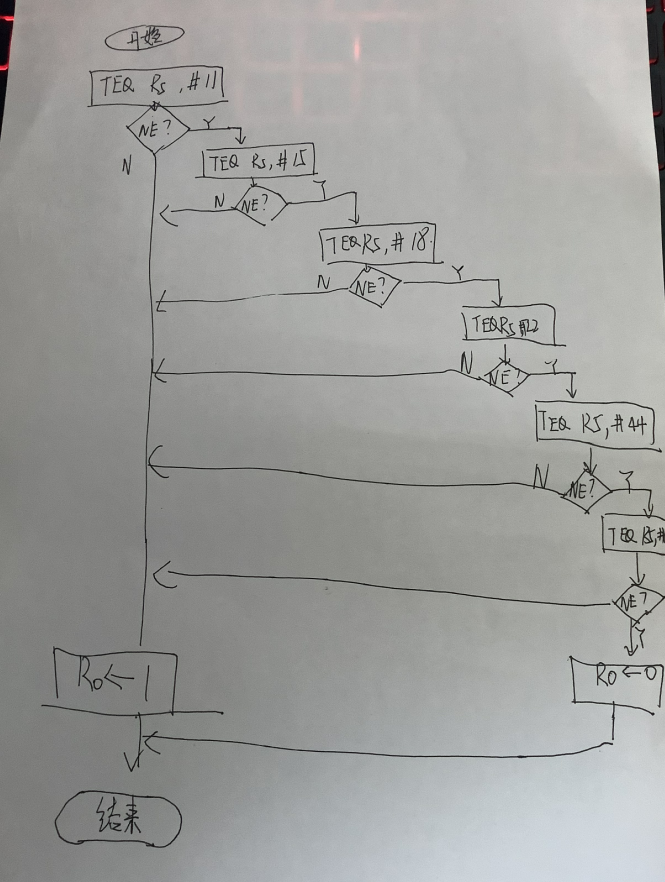 开始
TEQ R5, #11
NE?
Y
N
TEQ R5, #15
NE?
Y
N
TEQ R5, # 18
NE?
Y
N
TEQ R5 #22
NE?
Y
N
TEQ R5, #44
NE?
Y
N
TEQ R5, #
NE?
Y
R0 ← 1
R0 ← 0
结束